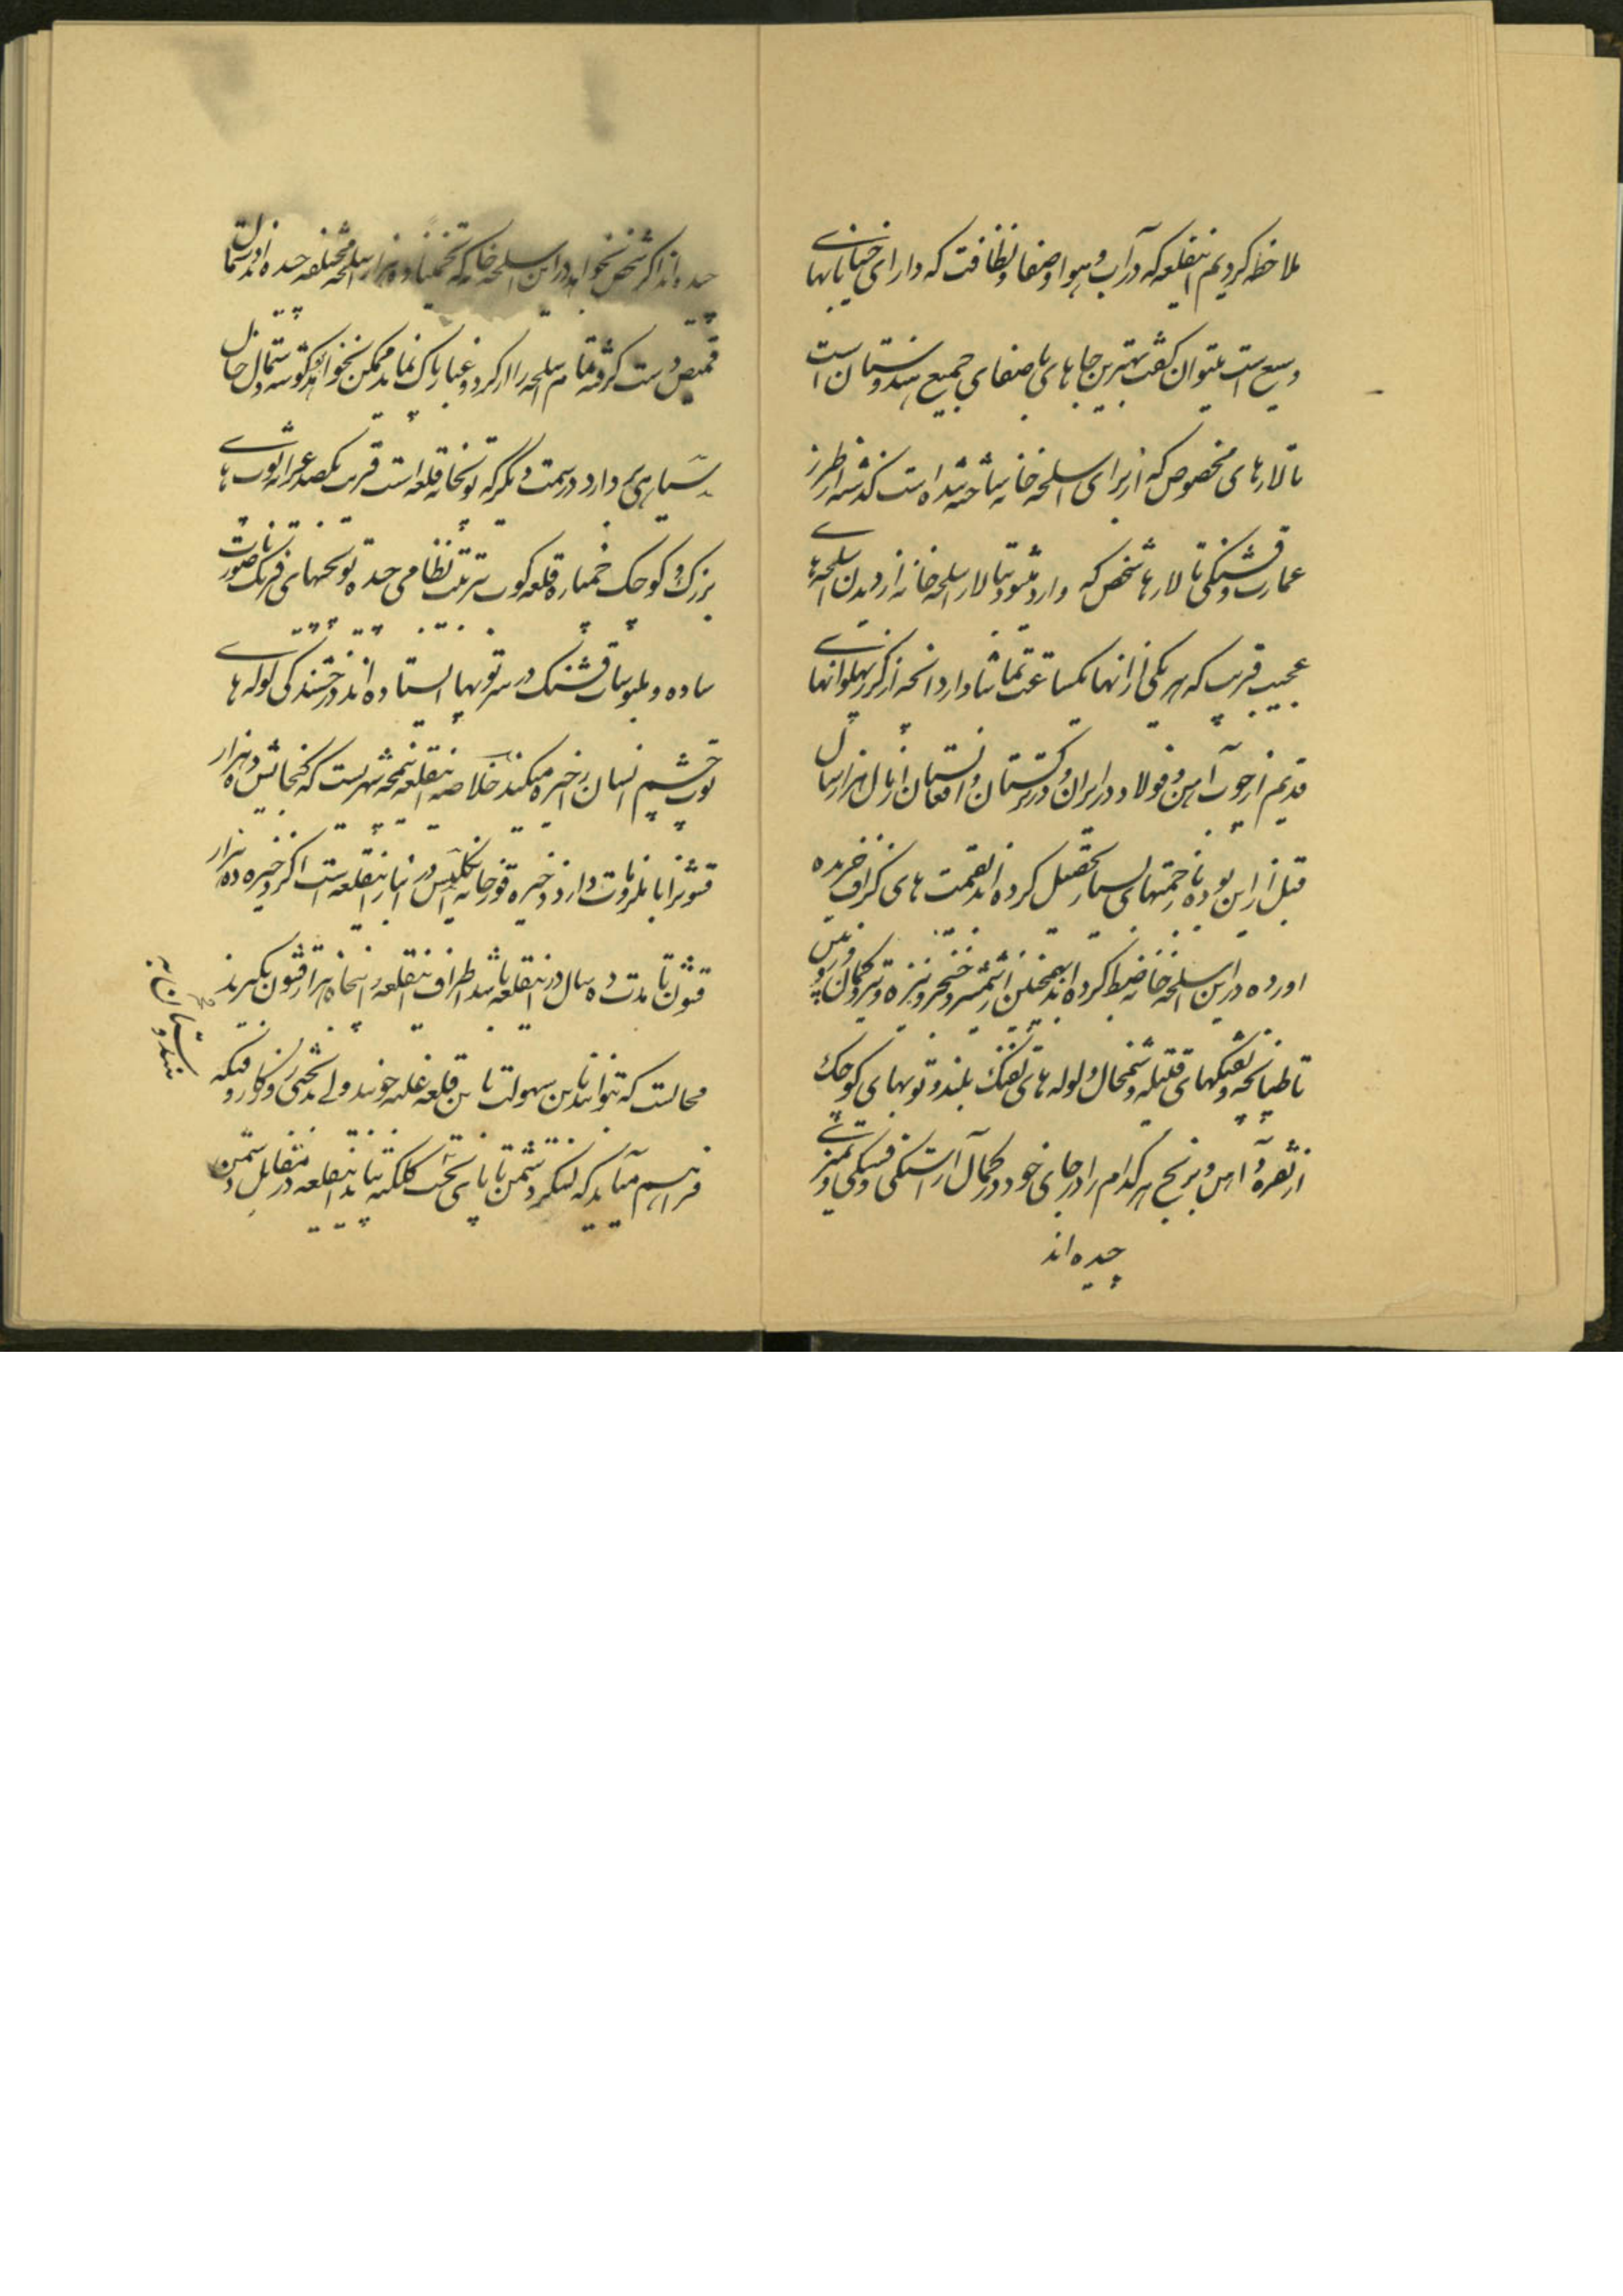 ملاحظه کردیم اینقلعه که در آب و هوا و صفا و نظافت که دارای خیابانهای
وسیع است میتوان گفت بهترین جاهای باصفای جمیع هندوستان است
تالارهای مخصوص که از برای اسلحه خانه ساخته شده است گذشته از طرز
عمارت و قشنگی تالارها شخص که وارد میشود بتالار اسلحه خانه از دیدن اسلحه‌های
عجیب غریب که هر یکی از انها یکساعت تماشا دارد انچه از گرز پهلوانهای
قدیم از چوب آهن و فولاد در ایران و ترکستان و افغانستان از سال هزار سال
قبل از این بوده با زحمتهای بسیار تحصیل کرده اند بقیمت های گزاف خریده
اورده در این اسلحه خانه ضبط کرده اند همچنین از شمشیر و خنجر و نیزه و تیر و کمان و
تا طپانچه و تفنگهای فتیله و شمخال و لوله های تفنگ بلند و توپهای کوچک
از نقره و آهن و برنج هر کدام را در جای خود در کمال آراستگی و قشنگی و تمیزی
چیده اند
چیده اند اگر شخص بخواهد در این اسلحه خانه که تخمیناً ده هزار اسلحه مختلفه چیده اند
دست گرفته تمام اسلحه را از گرد و غبار پاک نماید ممکن نخواهد
بسیاری دارد در سمت دیگر که توپخانه قلعه است قریب یکصد عراده توپ های
بزرگ و کوچک خمپاره قلعه کوب بترتیب نظامی چیده توپچیهای فرنگی
ساده و ملبوسات قشنگ در سر توپها ایستاده اند درخشندگی لوله های
توپ چشم انسان را خیره میکند خلاصه اینقلعه نیمچه شهریست که گنجایش ده هزار
قشونرا با ملزومات دارد ذخیره و قورخانه انگلیس در انبار اینقلعه است اگر ذخیره ده هزار
قشون تا مدت ده سال در اینقلعه باشد اطراف اینقلعه را پنجاه هزار قشون بگیرند
محالست که بتوانند باین سهولت باین قلعه غلبه جویند ولی بدبختی روزگار وقتیکه
فراهم میآید که لشکر دشمن تا پای تخت کلکته بیاید اینقلعه در مقابل دشمن
هندوستان